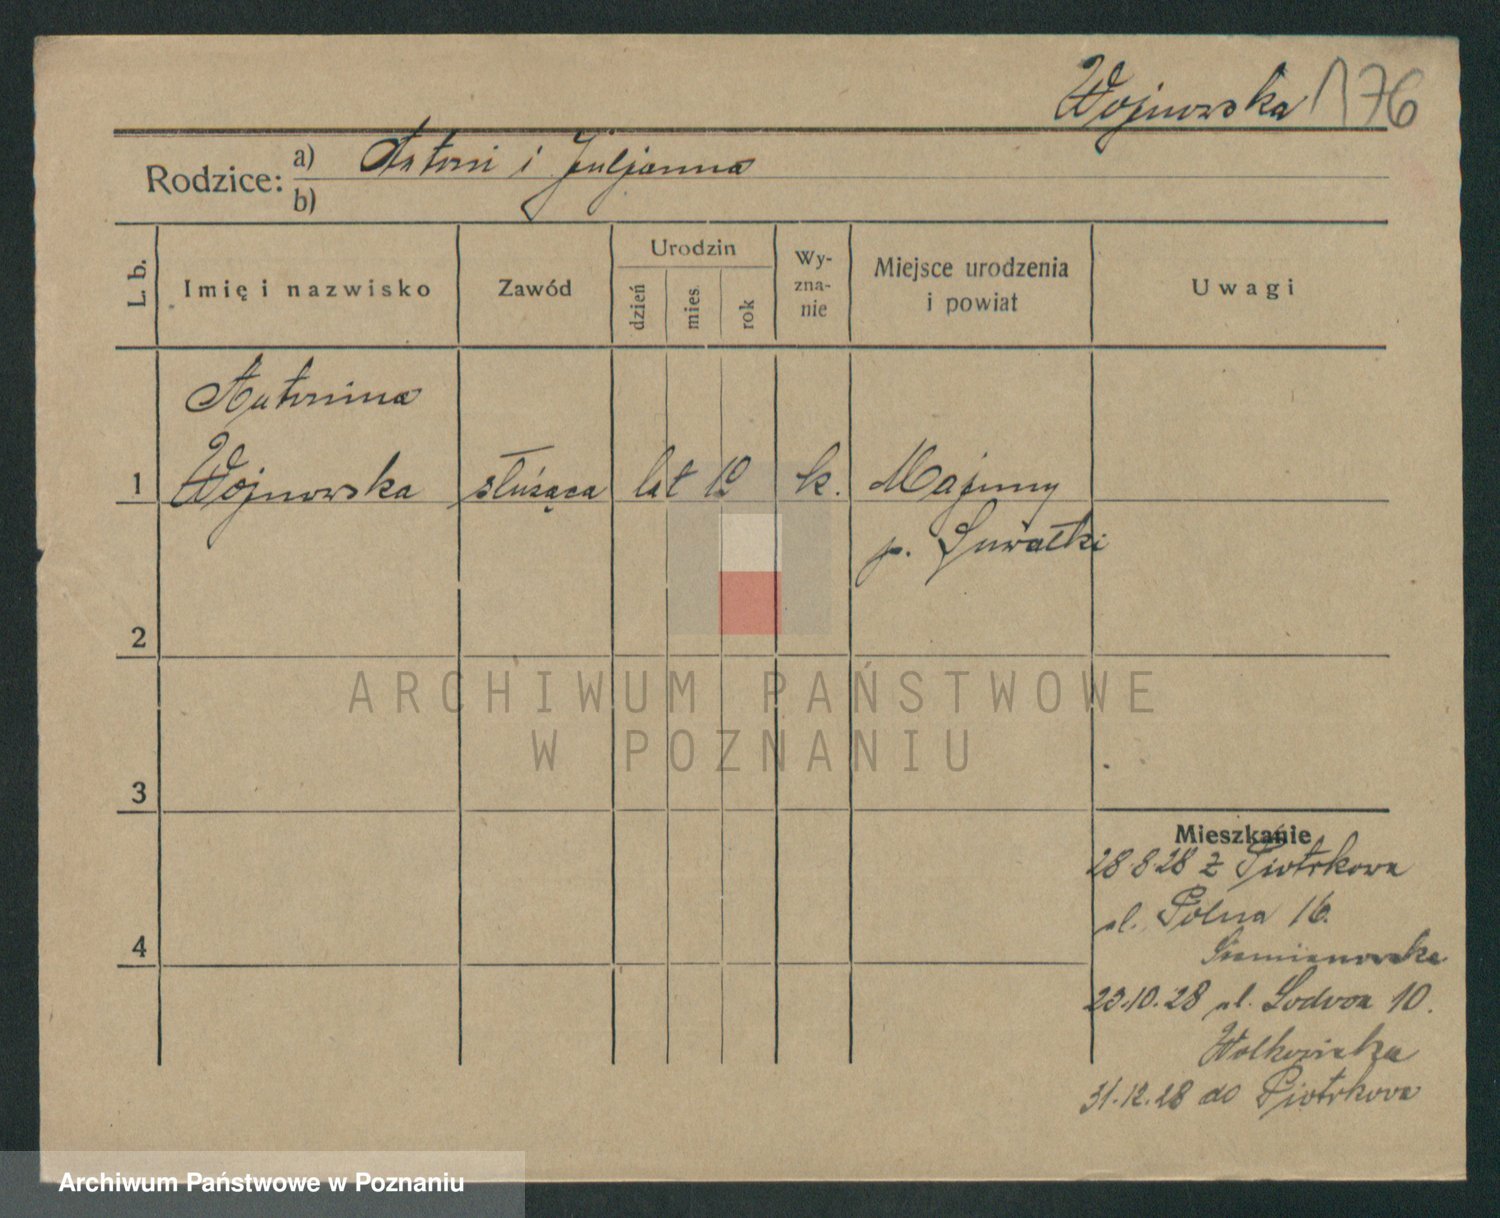 Wojnowska 176
Rodzice: a) Antoni i Juljanna
b)
L. b.
Imię i nazwisko
Zawód
Urodzin
dzień
mies.
rok
Wy-
zna-
nie
Miejsce urodzenia
i powiat
Uwagi
Antonina
1 Wojnowska służąca lat 19 k.
p. Suwałki
2
ARCHIWUM PAŃSTWOWE
W POZNANIU
3
Mieszkanie
28.8.28 z Piotrkowa
ul. Polna 16.
4
23.10.28 ul. 10.
31.12.28 do Piotrkowa
Archiwum Państwowe w Poznaniu